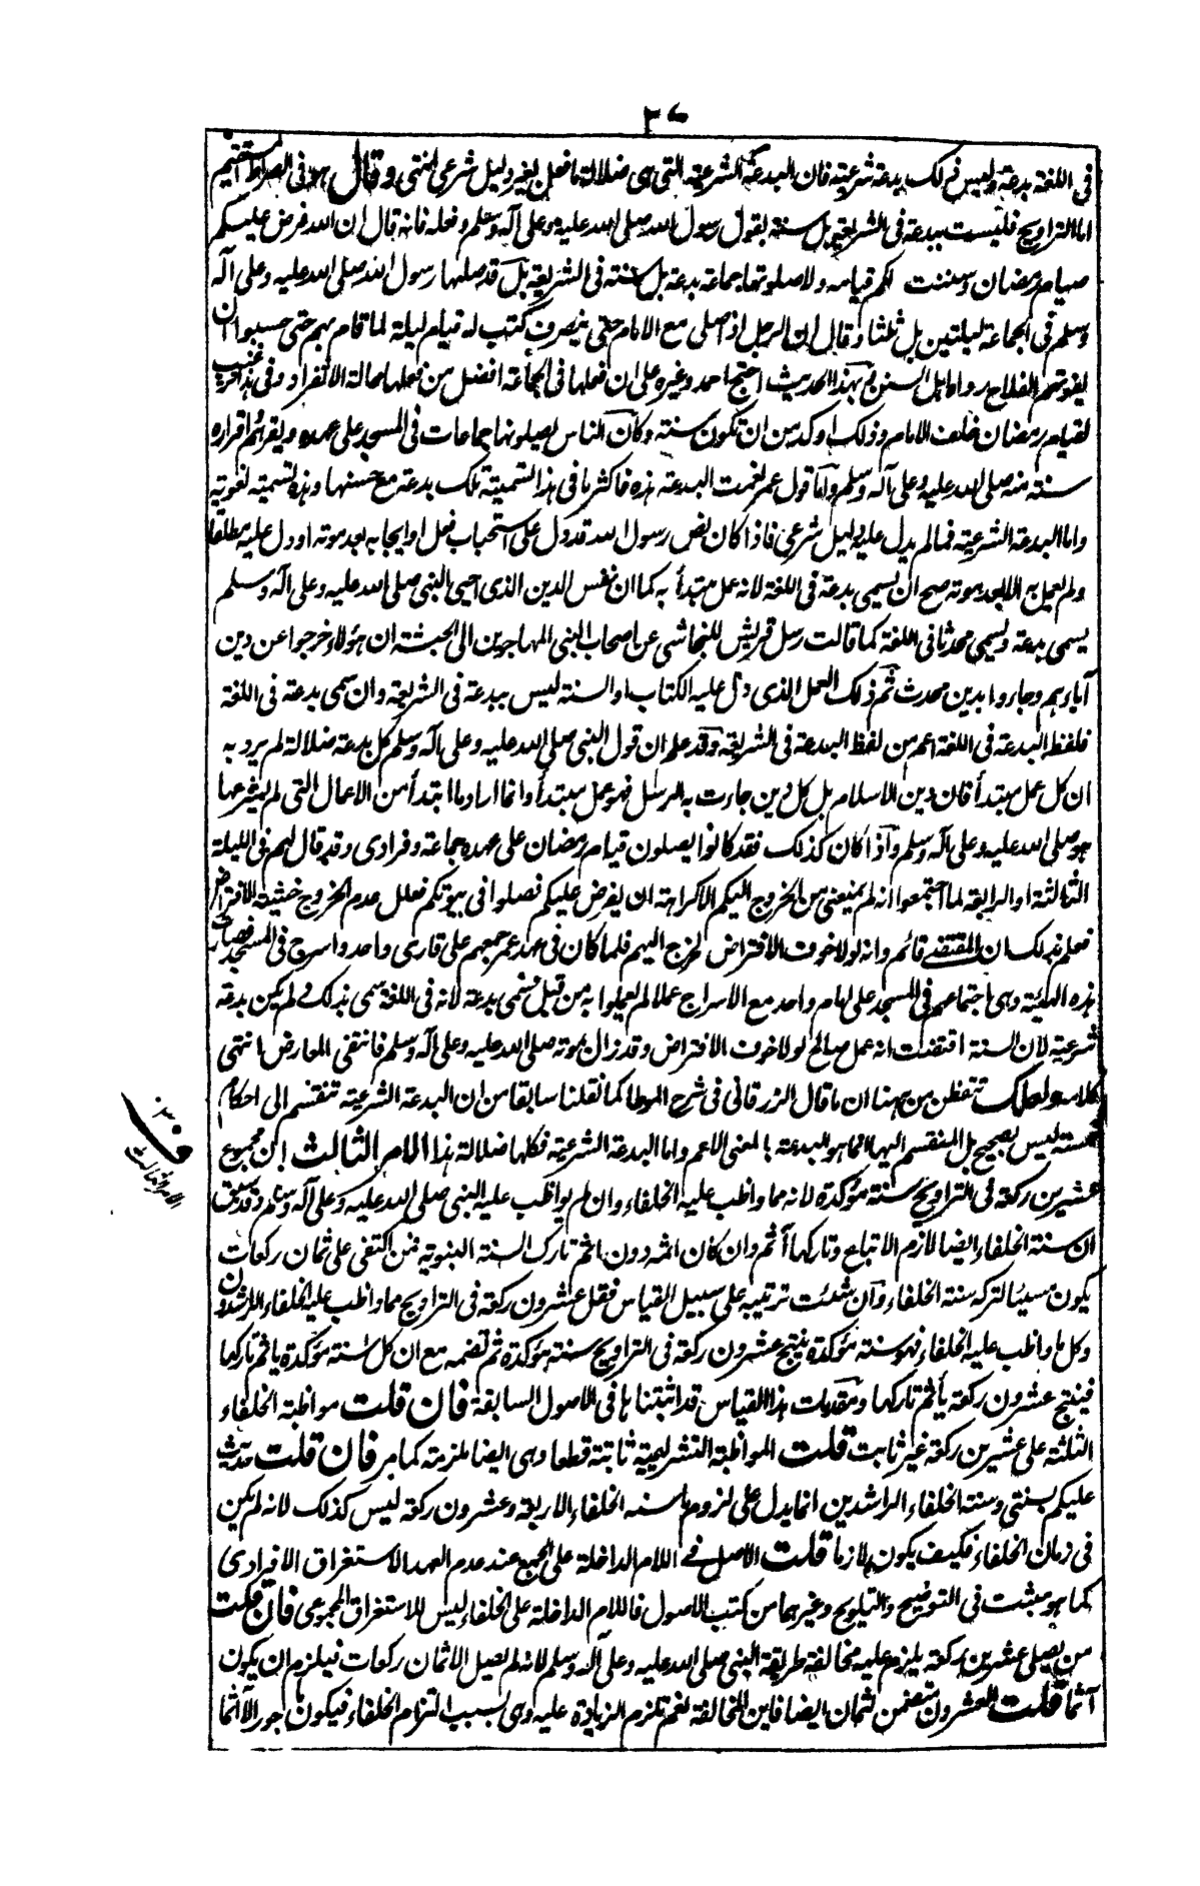 في اللغة بدعة وليس ذلك بدعة شرعية فان البدعة الشرعية التي هى ضلالة ما فعل بغير دليل شرعى انتهى وقال هو فى الصراط المستقيم
اما التراويح فليست ببدعة فى الشريعة بل سنة بقول رسول الله صلى الله عليه وعلى آله وسلم وفعله فانه قال ان الله فرض عليكم
صيام رمضان وسننت لكم قيامه ولا صلوتها جماعة بدعة بل سنة فى الشريعة بل قد صلها رسول الله صلى الله عليه وعلى آله
وسلم فى الجماعة ليلتين بل ثلثا وقال ان الرجل اذا صلى مع الامام حتى ينصرف كتب له قيام ليلة لما قام بهم حتى حسبوا ان
يفوتهم الفلاح رواه اهل السنن وبهذا الحديث احتج احمد وغيره على ان فعلها فى الجماعة افضل من فعلها حالة الانفراد وفى هذا ترغيب
لقيام رمضان خلف الامام وذلك اوكد من ان تكون سنة وكان الناس يصلونها جماعات فى المسجد على عهده ويقرهم واقراره
سنة منه صلى الله عليه وعلى آله وسلم واما قول عمر نعمت البدعة هذه فاكثر ما فى هذا التسمية تلك بدعة مع حسنها وهذه تسمية لغوية
واما البدعة الشرعية فما لم يدل عليه دليل شرعى فاذا كان نص رسول الله قد دل على استحباب فعل او ايجابه بعد موته او دل عليه مطلقا
ولم يعمل به الا بعد موته صح ان يسمى بدعة فى اللغة لانه عمل مبتدأ به كما ان نفس الدين الذى احيى النبى صلى الله عليه وعلى آله وسلم
يسمى بدعة ويسمى محدثا فى اللغة كما قالت رسل قريش للنجاشى عن اصحاب النبى المهاجرين الى الحبشة ان هؤلاء خرجوا عن دين
آباؤهم وجاءوا بدين محدث ثم ذلك العمل الذى دل عليه الكتاب او السنة ليس ببدعة فى الشريعة وان سمى بدعة فى اللغة
فلفظ البدعة فى اللغة اعم من لفظ البدعة فى الشريعة وقد علم ان قول النبى صلى الله عليه وعلى آله وسلم كل بدعة ضلالة لم يرد به
ان كل عمل مبتدأ فان دين الاسلام بل كل دين جاءت به الرسل فهو عمل مبتدأ وانما اراد ما ابتدأ من الاعمال التى لم يشرعها
هو صلى الله عليه وعلى آله وسلم واذا كان كذلك فقد كانوا يصلون قيام رمضان على عهده جماعة وفرادى وقد قال لهم فى الليلة
الثالثة او الرابعة لما اجتمعوا انه لم يمنعنى من الخروج اليكم الا كراهة ان يفرض عليكم فصلوا فى بيوتكم فعلل عدم الخروج خشية الافتراض
فعلم بذلك ان المقتضى قائم وانه لولا خوف الافتراض لخرج اليهم فلما كان فى عهد عمر جمعهم على قارى واحد واسرج فى المسجد فصارت
هذه الهيئة وهى اجتماعهم فى المسجد على امام واحد مع الاسراج عملا لم يعملوا به من قبل فسمى بدعة لانه فى اللغة يسمى بذلك ولم يكن بدعة
شرعية لان السنة اقتضت انه عمل صالح لولا خوف الافتراض وقد زال بموته صلى الله عليه وعلى آله وسلم فانتفى المعارض انتهى
كلامه ولعلك تتفطن من ههنا ان ما قال الزرقانى فى شرح الموطا كما نقلنا سابقا من ان البدعة الشرعية تنقسم الى احكام
خمسة ليس بصحيح بل المنقسم اليها انما هو البدعة بالمعنى الاعم واما البدعة الشرعية فكلها ضلالة هذا الامر الثالث ان مجموع
عشرين ركعة فى التراويح سنة مؤكدة لانه مما واظب عليه الخلفاء وان لم يواظب عليه النبى صلى الله عليه وعلى آله وسلم وقد سبق
ان سنة الخلفاء ايضا لازم الاتباع وتاركها آثم وان كان اثمه دون اثم تارك السنة النبوية فمن اكتفى على ثمان ركعات
يكون مسيئا لتركه سنة الخلفاء وان شئت ترتيبه على سبيل القياس فقل عشرون ركعة فى التراويح مما واظب عليه الخلفاء الراشدون
وكل ما واظب عليه الخلفاء فهو سنة مؤكدة ينتج عشرون ركعة فى التراويح سنة مؤكدة ثم تضمه مع ان كل سنة مؤكدة ياثم تاركها
فينتج عشرون ركعة يأثم تاركها ومقدمات هذا القياس قد اثبتناها فى الاصول السابقة فان قلت مواظبة الخلفاء
الثلثة على عشرين ركعة غير ثابت قلت المواظبة التشريعية ثابتة قطعا وهى ايضا ملزمة كما مر فان قلت حديث
عليكم بسنتى وسنة الخلفاء الراشدين انما يدل على لزوم ما سنه الخلفاء الاربعة وعشرون ركعة ليس كذلك لانه لم يكن
فى زمان الخلفاء فكيف يكون لازما قلت الاصل فى اللام الداخلة على الجمع عند عدم العهد الاستغراق الافرادى
كما هو مثبت فى التوضيح والتلويح وغيرهما من كتب الاصول فاللام الداخلة على الخلفاء ليس للاستغراق المجموعى فان قلت
من يصلى عشرين ركعة يلزم عليه مخالفة طريقة النبى صلى الله عليه وعلى آله وسلم لانه لم يصل الا ثمان ركعات فيلزم ان يكون
آثما قلت العشرون متضمن لثمان ايضا فاين المخالفة نعم تلزم الزيادة عليه وهى بسبب التزام الخلفاء فيكون ماجورا لا آثما
الامر الثالث